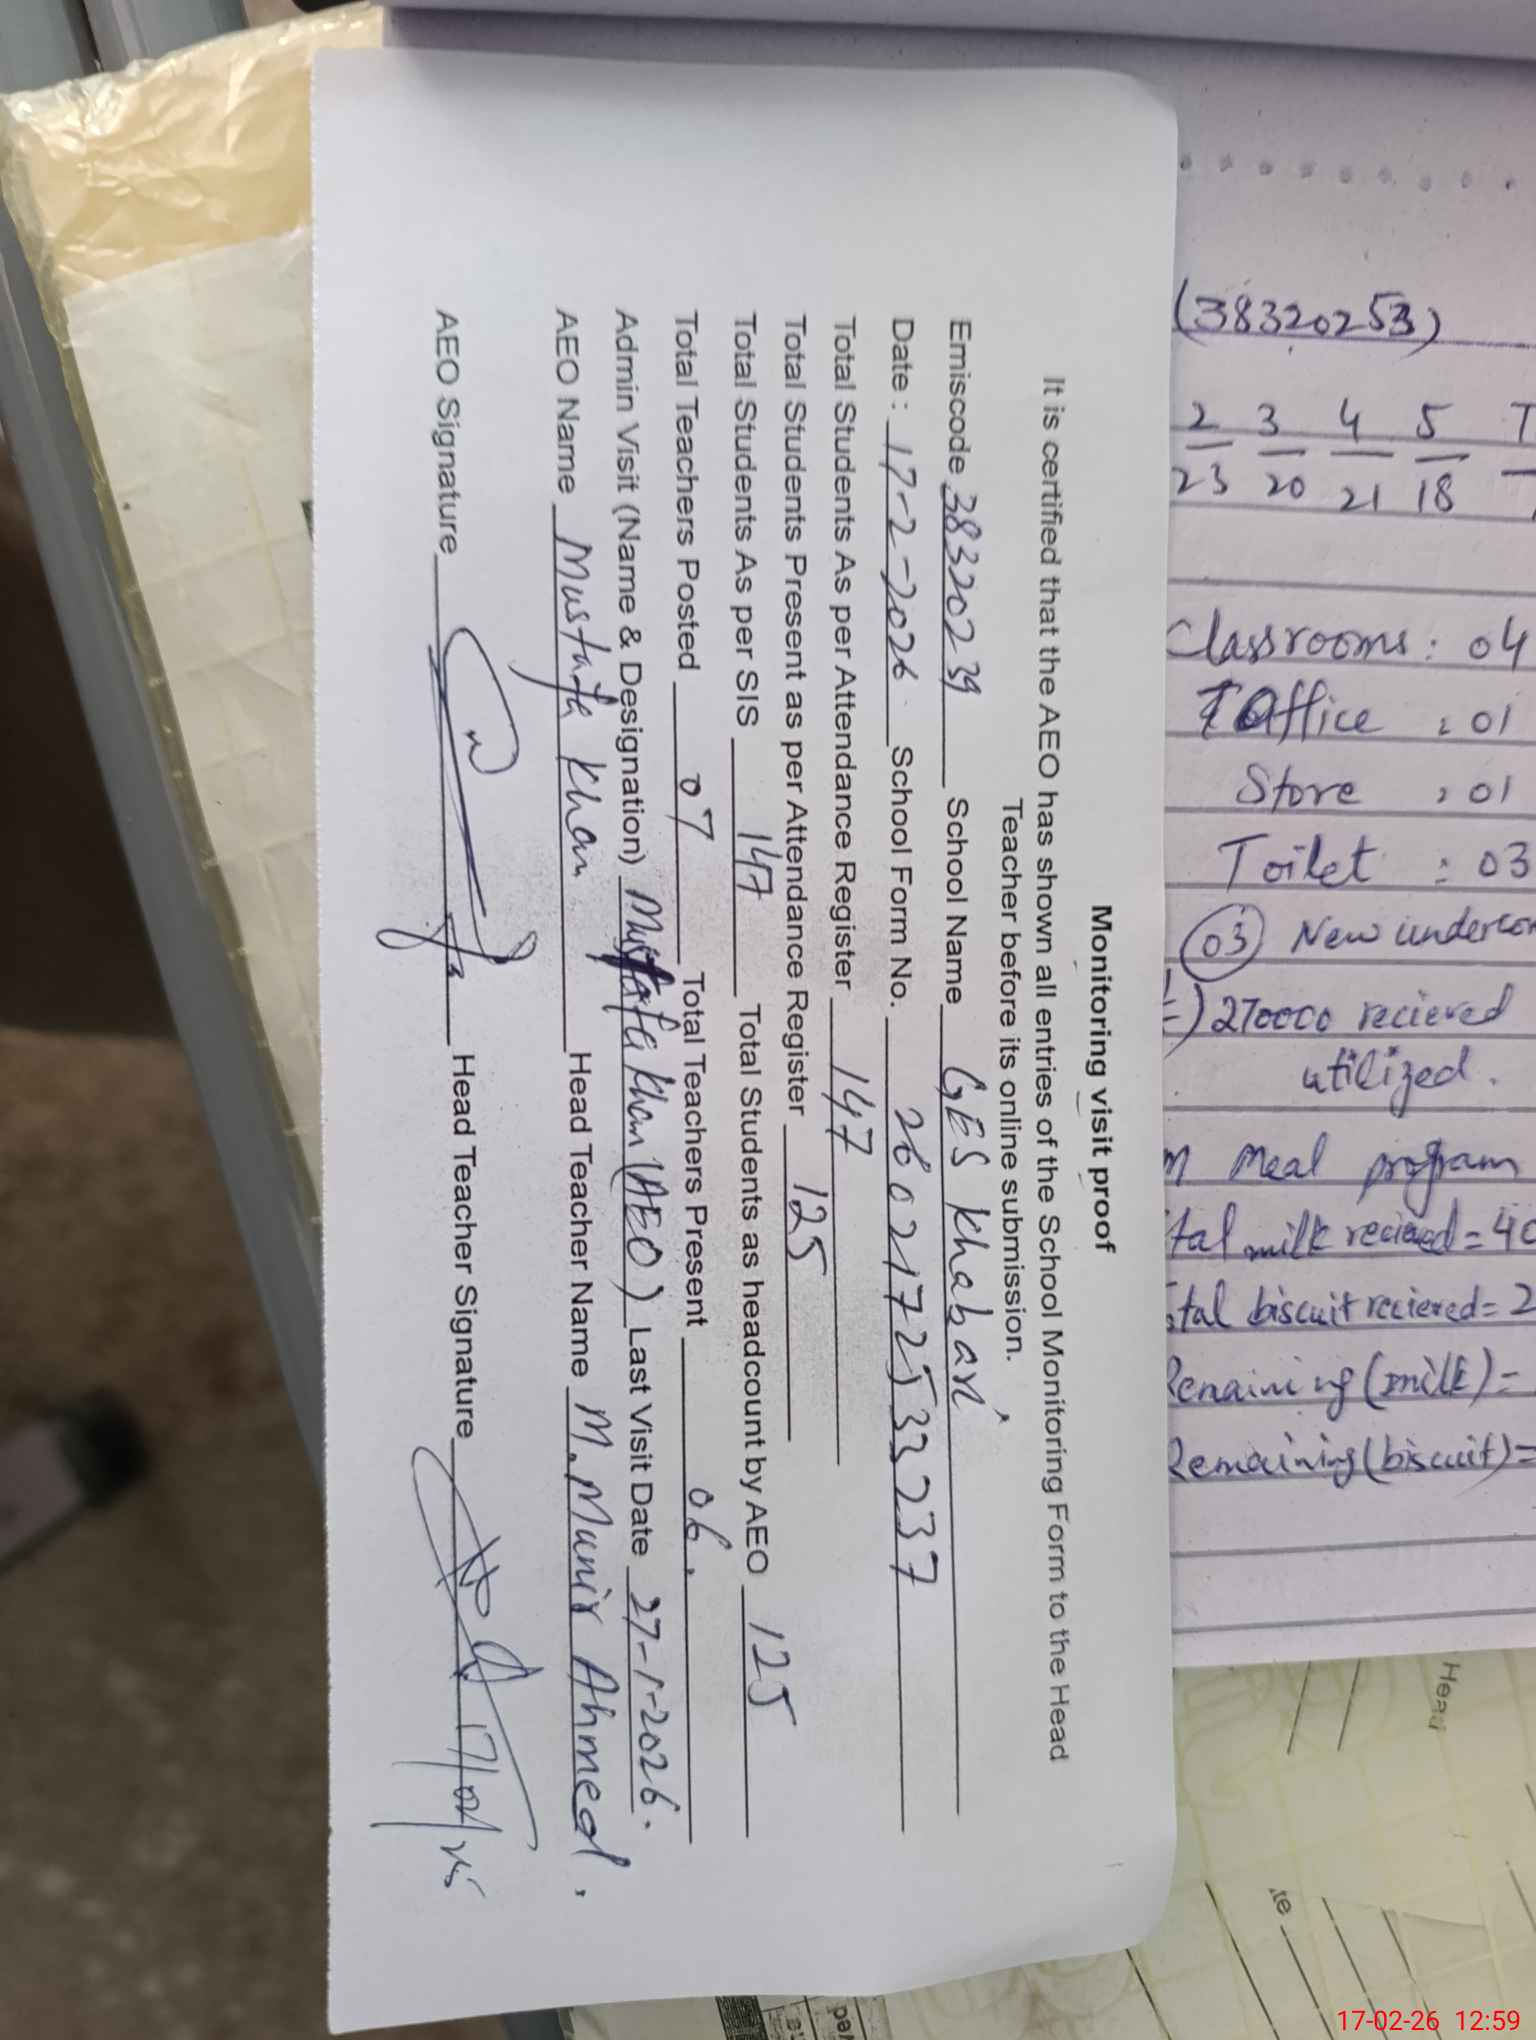 Monitoring visit proof
It is certified that the AEO has shown all entries of the School Monitoring Form to the Head
Teacher before its online submission.
Emiscode 38320239 School Name GES Khabari
Date: 17-2-2026 School Form No. 2602172533237
Total Students As per Attendance Register 147
Total Students Present as per Attendance Register 125
Total Students As per SIS 147 Total Students as headcount by AEO 125
Total Teachers Posted 07 Total Teachers Present 06.
Admin Visit (Name & Designation) Mustafa Khan (AEO) Last Visit Date 27-1-2026.
AEO Name Mustafa Khan Head Teacher Name M. Munir Ahmed,
AEO Signature Head Teacher Signature
(38320253)
2 3 4 5 T
23 20 21 18
Classrooms: 04
Office : 01
Store : 01
Toilet : 03
03 New
270000 recieved
utilized.
Meal program
milk recieved = 40
biscuit recieved = 2
Remaining (milk) =
Remaining (biscuit) =
Head
17-02-26 12:59